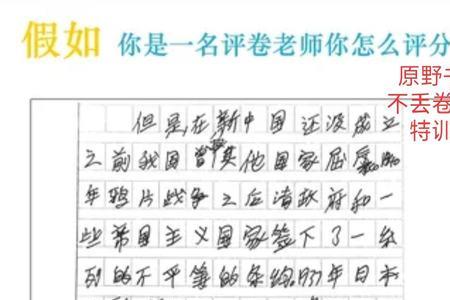 假如 你是一名评卷老师你怎么评分
原野
不丢卷
特训
但是,在新中国还没成立
之前我国曾被其他国家屈辱1840
年鸦片战争之后清政府和一
些帝国主义国家签下了一系
列的不平等的条约.1937年日本